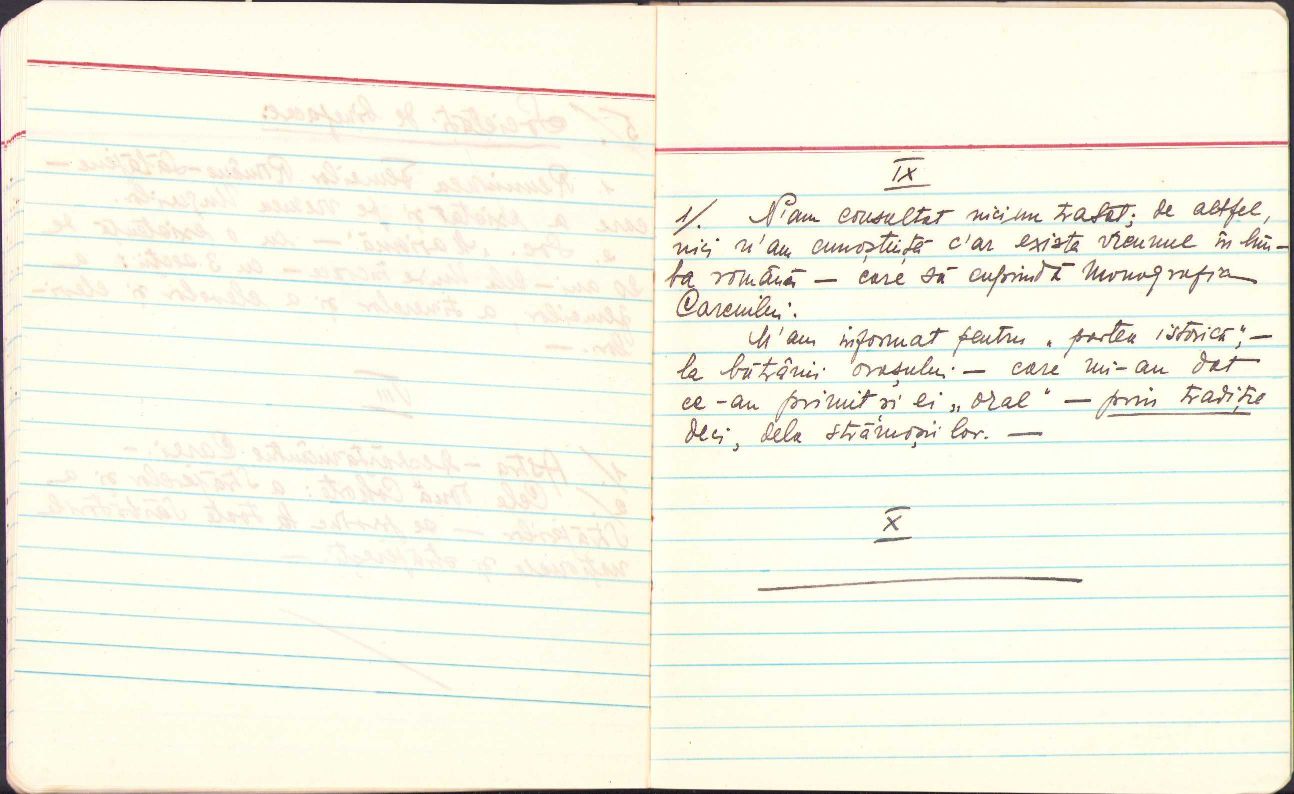 IX
1/. N'am consultat niciun tratat; de altfel,
nici n'am cunoștință c'ar exista vreunul în lim-
ba română — care să cuprindă Monografia
Careiului.
M'am informat pentru „partea istorică", —
la bătrânii orașului — care mi-au dat
ce-au primit și ei „oral" — prin tradiție
deci, dela strămoșii lor. —
X